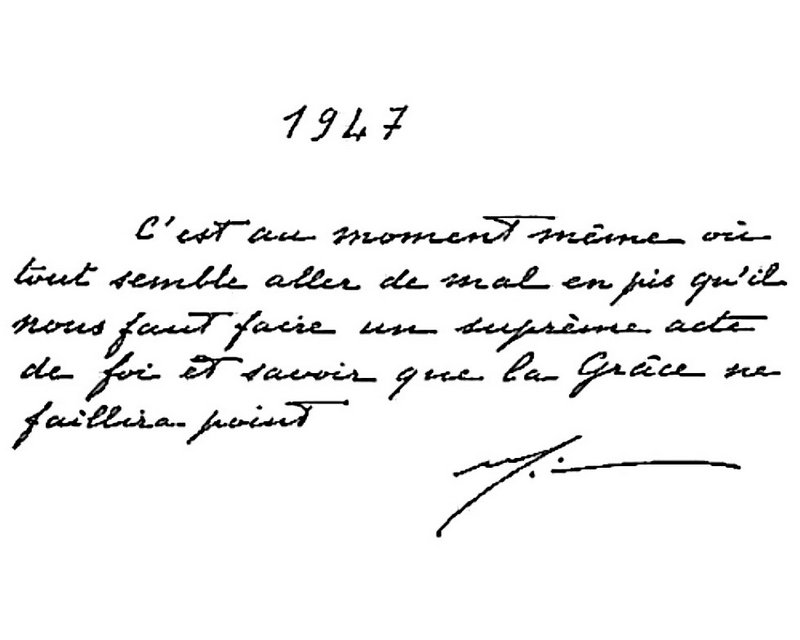 1947
C'est au moment même où
tout semble aller de mal en pis qu'il
nous faut faire un suprème acte
de foi et savoir que la Grâce ne
faillira point